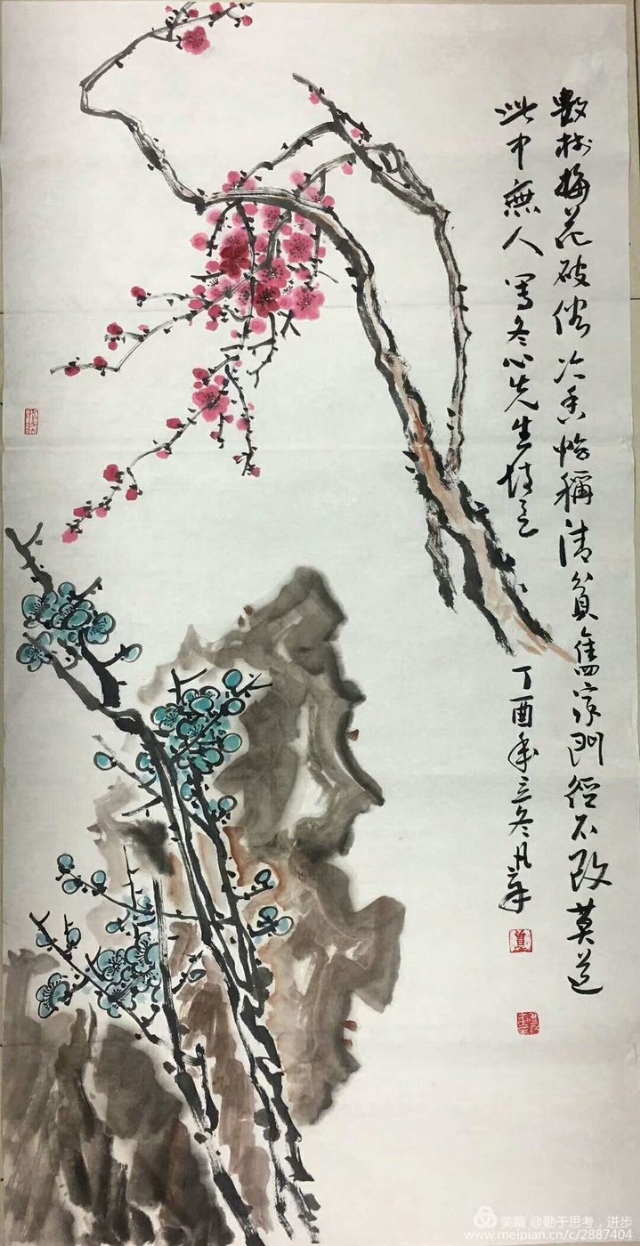 數樹梅花破俗冷香恰稱清貧舊家門徑不改莫道
此中無人 寫冬心先生诗意 丁酉年立冬凡
美篇 @勤于思考，进步
www.meipian.cn/c/2887404